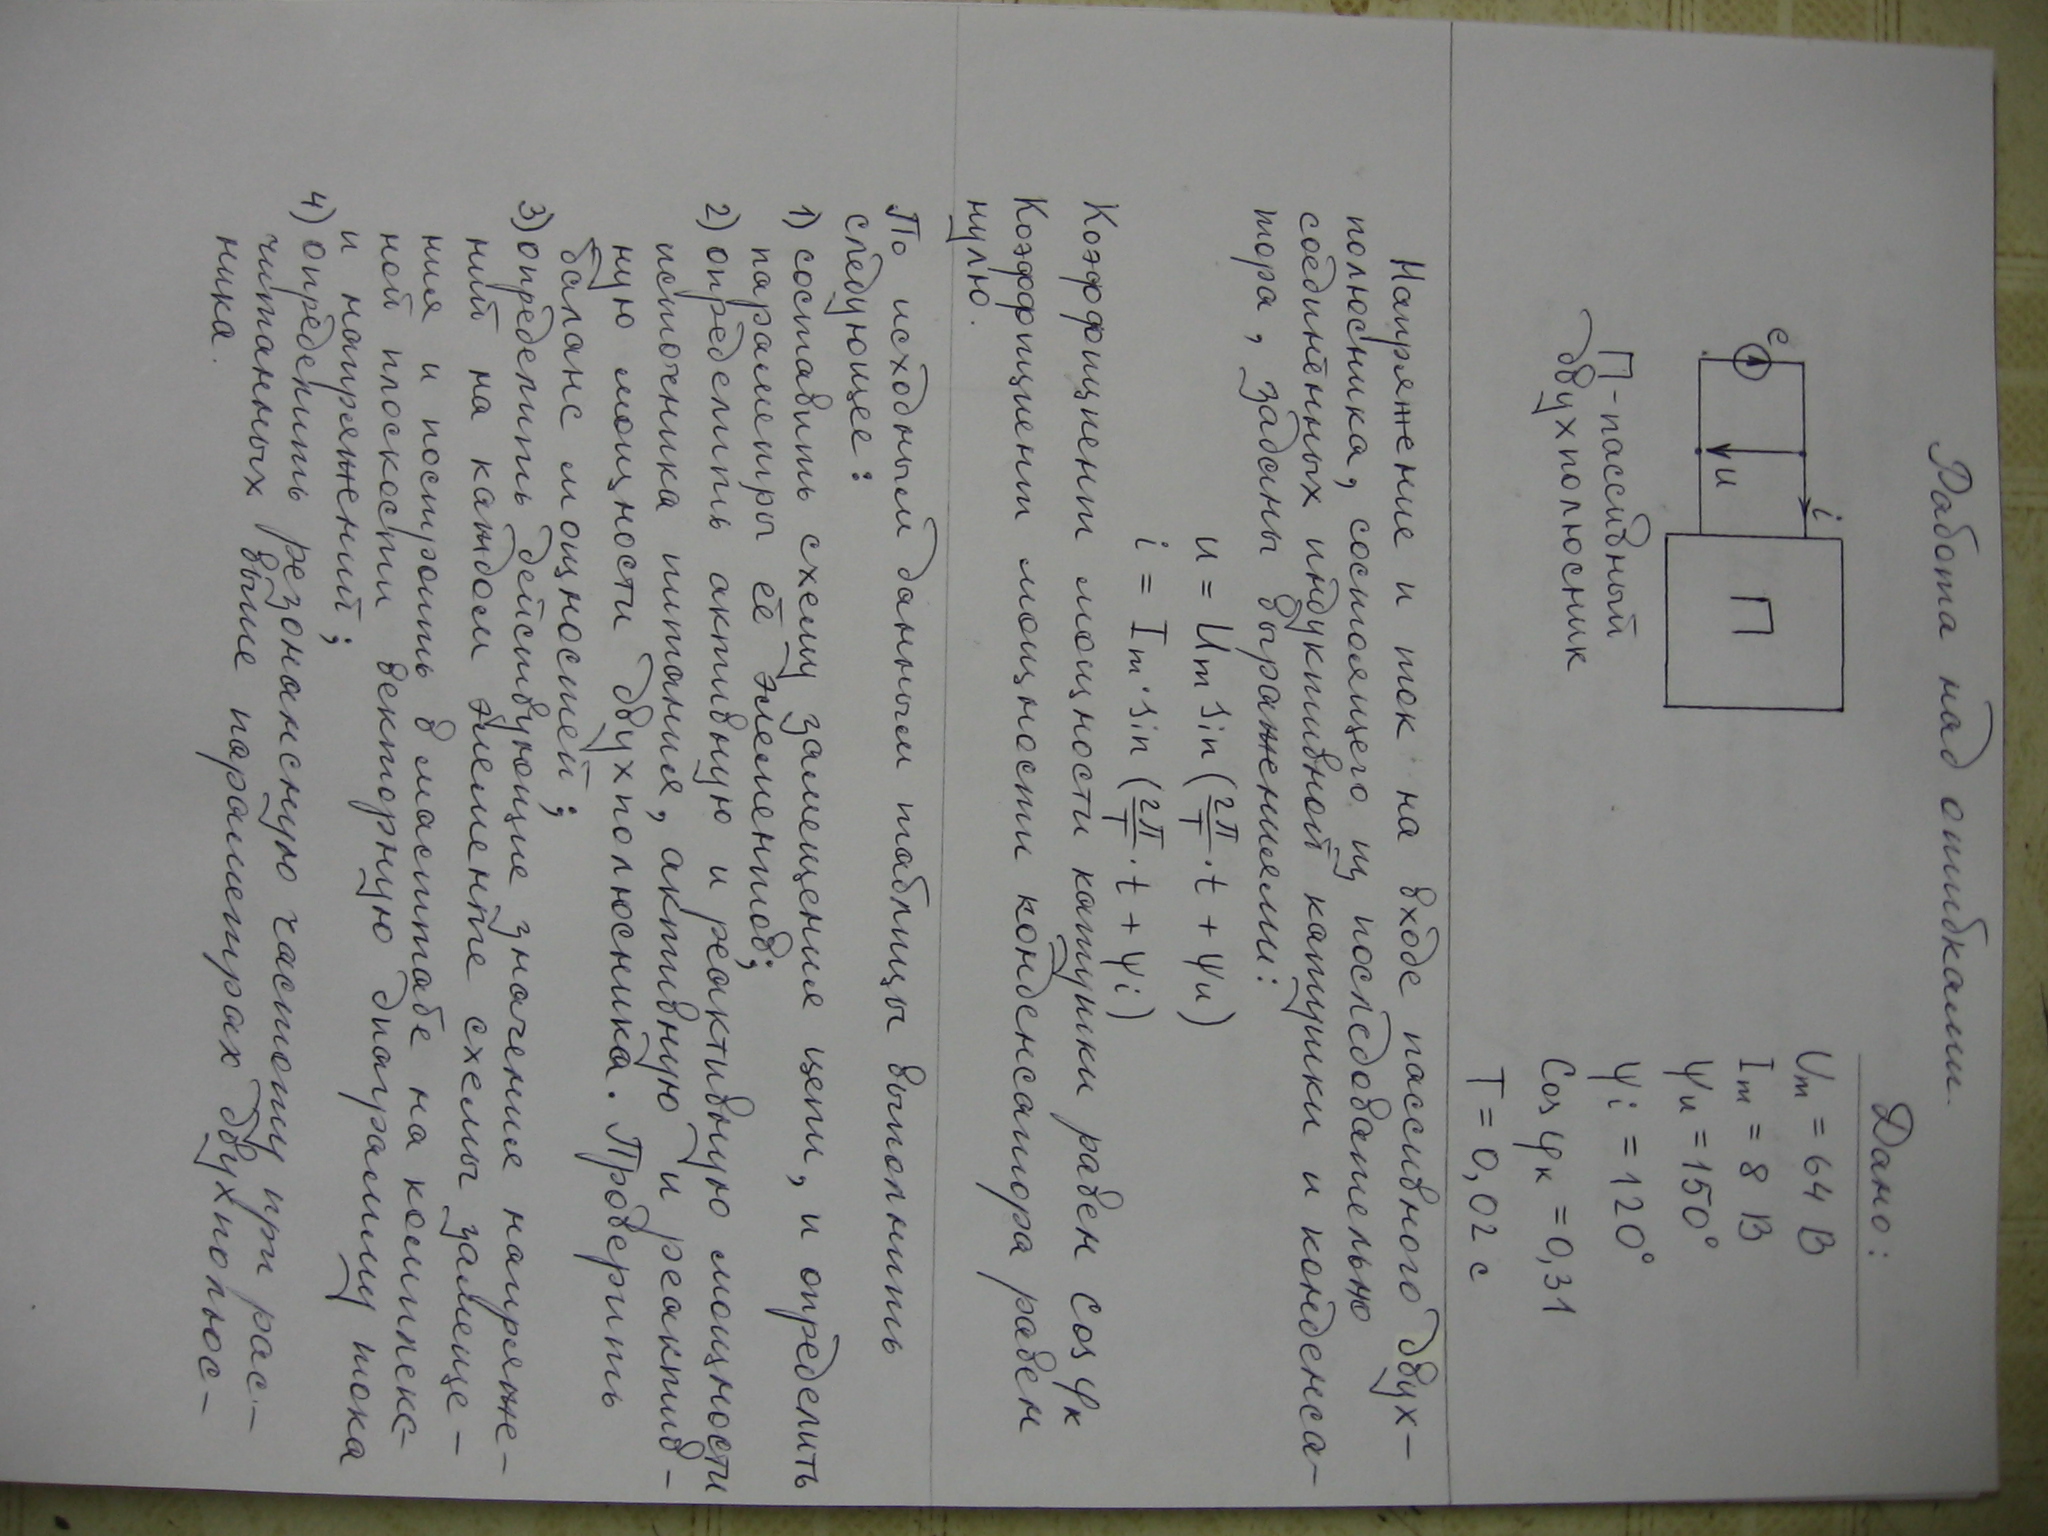 Работа над ошибками.
Дано:
Um = 64 В
Im = 8 В
ψu = 150°
ψi = 120°
Cos φк = 0,31
T = 0,02 с
e
i
u
П
П - пассивный
двухполюсник
Напряжение и ток на входе пассивного двух-
полюсника, состоящего из последовательно
соединённых индуктивной катушки и конденса-
тора, заданы выражениями:
u = Um sin (2π/T · t + ψu)
i = Im · sin (2π/T · t + ψi)
Коэффициент мощности катушки равен Cos φк
Коэффициент мощности конденсатора равен
нулю.
По исходным данным таблицы выполнить
следующее:
1) составить схему замещения цепи, и определить
параметры её элементов;
2) определить активную и реактивную мощности
источника питания, активную и реактив-
ную мощности двухполюсника. Проверить
баланс мощностей;
3) определить действующие значение напряже-
ний на каждом элементе схемы замеще-
ния и построить в масштабе на комплекс-
ной плоскости векторную диаграмму тока
и напряжений;
4) определить резонансную частоту при рас-
читанных выше параметрах двухполюс-
ника.